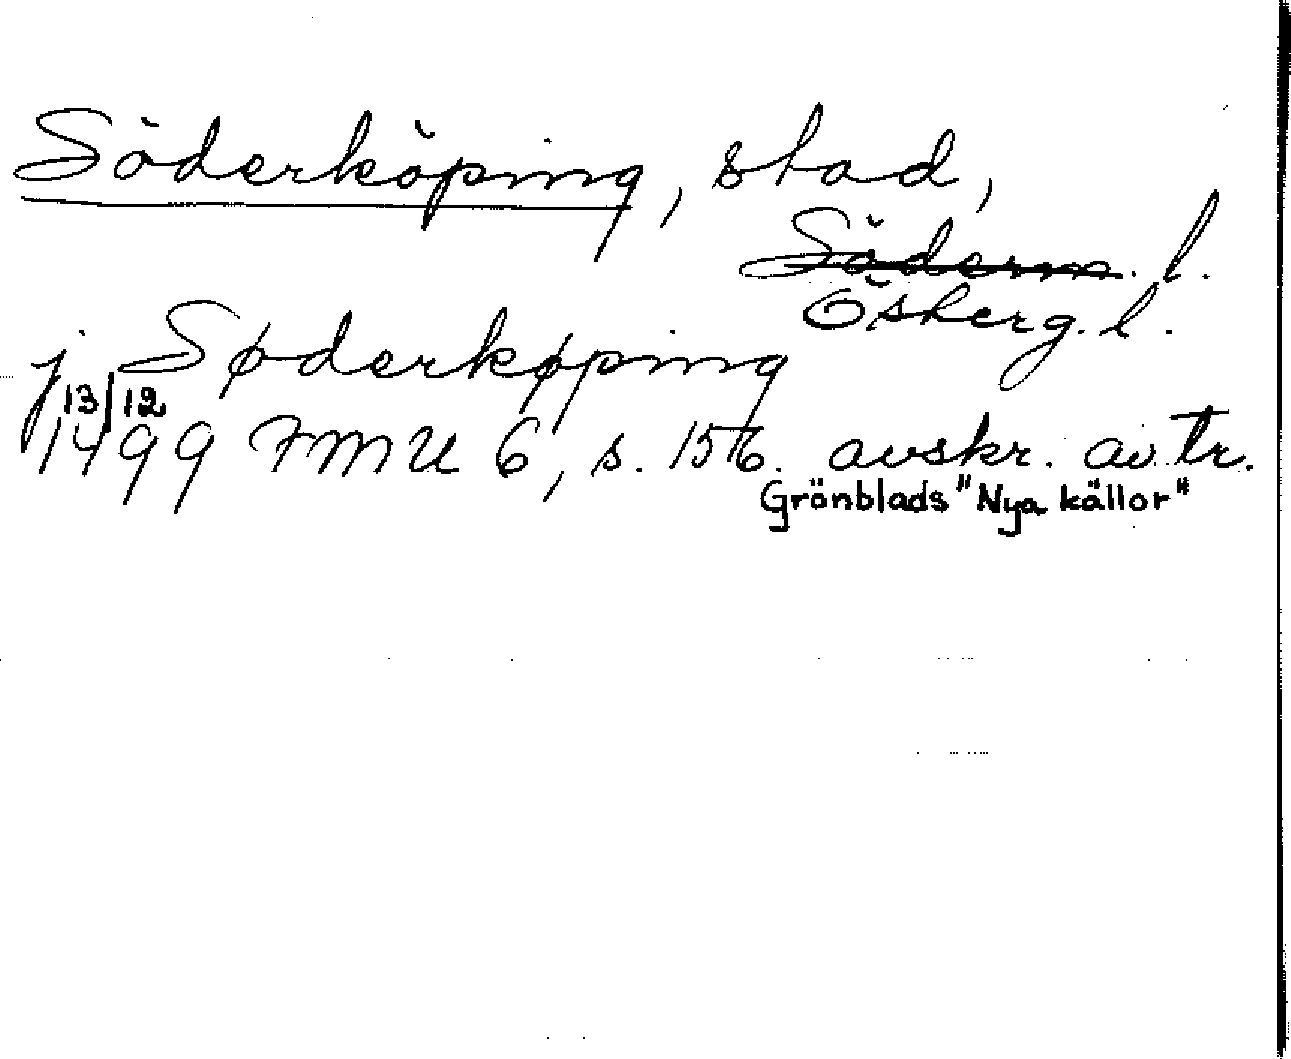 Söderköping, stad,
Söderm. l.
Österg. l.
j Søderkøping
13/12
1499 FMU 6, s. 156. avskr. av tr.
Grönblads "Nya källor"